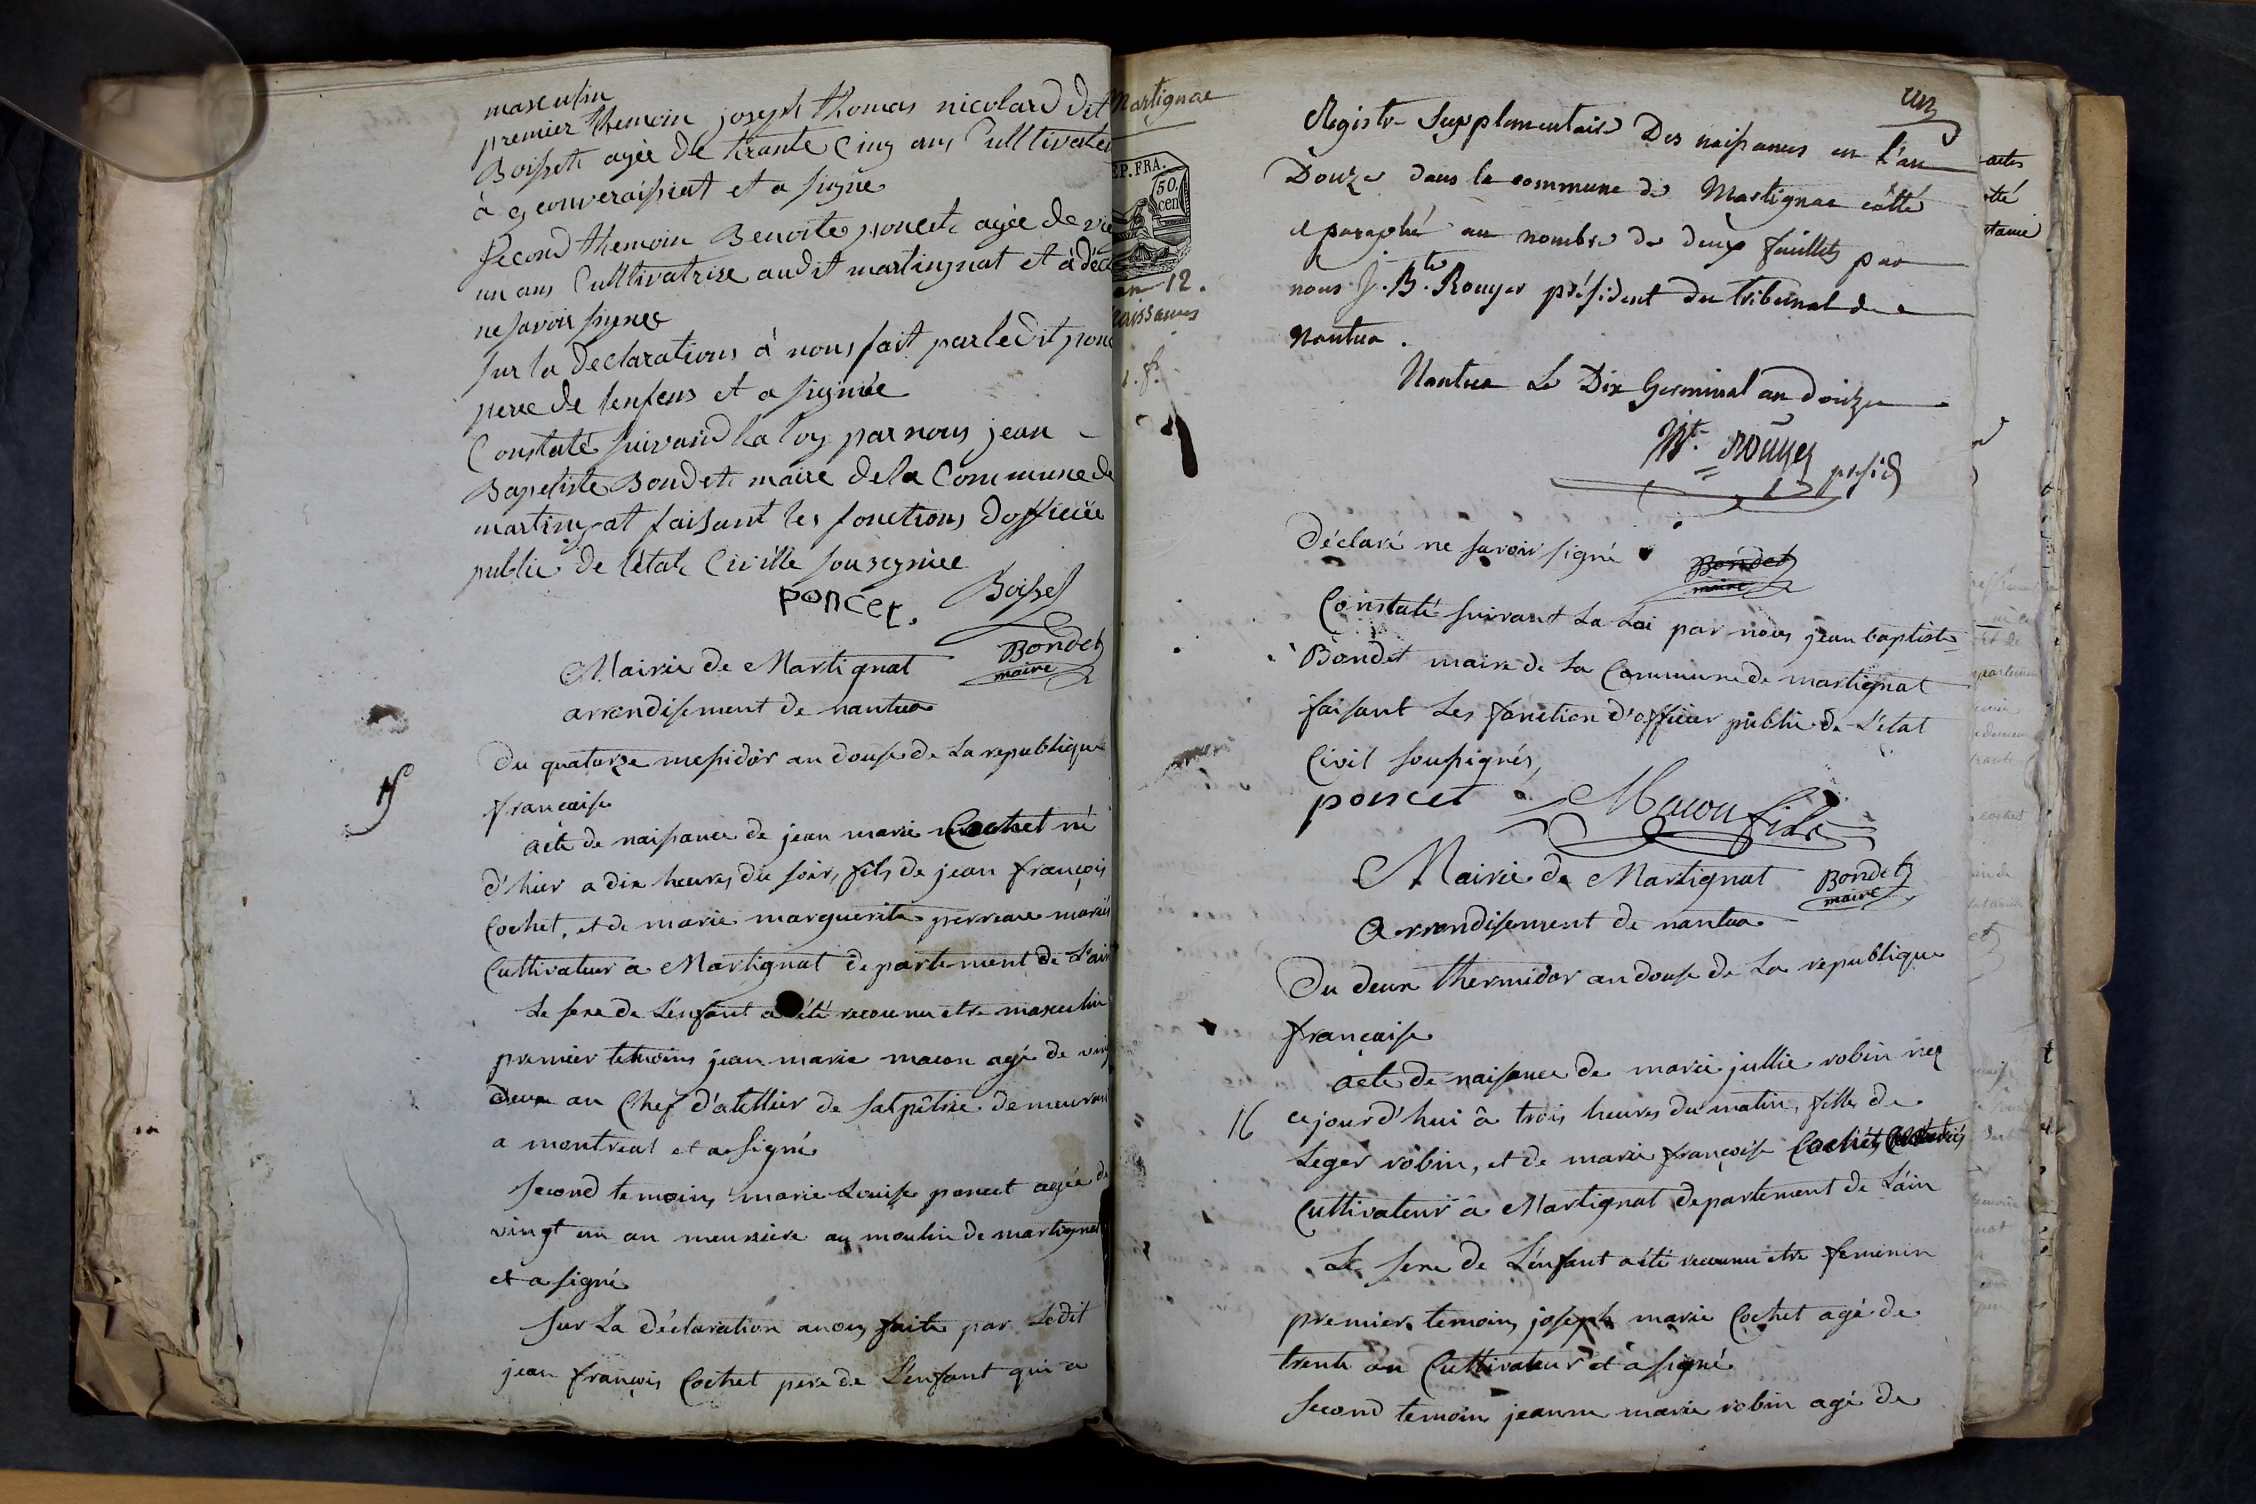 masculin
premier themoin joseph thomas nicolard dit
Boisset agée de trante Cinq ans Cultivateu
à geouveraissiat et a signée
second themoin Benoite poncet agée de vin
un ans Cultivatrise audit martingnat et à déc
ne savoir signer
sur la declarations à nous fait par le dit ponc
pere de lenfens et a signiée
Constaté suivand la loy par nous jean
Baptiste Bondet maire de la Commune de
martingnat faisant les fonctions dofficiée
public de létat Civille sousegniée
poncet. Boisset
Bondet
maire
Mairie de Martignat
arrondisement de nantua
15
du quatorze messidor an douse de la republique
française
acte de naissance de jean marie Cochet né
d'hier a dix heures du soir, fils de jean françois
Cochet, et de marie marguerite perreau mariés
Cultivateur a Martignat departement de l'ain
Le sexe de L'enfant a été reconnu etre masculin
premier temoins jean marie macon agé de vingt
deux an Chef d'atellier de salpêtrie demeurant
a montreal et a signé
second temoins marie Louise poncet agée de
vingt un an meuniere au moulin de martignat
et a signé
sur La déclaration a nous faite par Ledit
jean françois Cochet pere de L'enfant qui a
Martignac
EP. FRA.
50.
cen
an 12.
naissances
un
Registre Supplementaire Des naissances en l'an
Douze dans la commune de Martignac côtté
et paraphé au nombre de deux feuillets par
nous J. Bte. Rouyer président du tribunal de
Nantua.
Nantua Le Dix Germinal an douze
Bt. Rouyer présid
Déclaré ne savoir signé
Bondet
maire
Constaté suivant La Loi par nous jean baptiste
Bondet maire de La Commune de martignat
faisant Les fonction d'officier public de L'état
Civil soussignés,
poncet Macon fils
Bondet
maire
Mairie de Martignat
arrondisement de nantua
Du deux thermidor an douse de La republique
française
acte de naissance de marie jullie robin neé
16
cejourd'hui à trois heures du matin, fille de
Leger robin, et de marie françoise Cochet
Cultivateur à Martignat departement de L'ain
Le sexe de L'enfant a été reconnu etre feminin
premier temoins joseph marie Cochet agé de
trente an Cultivateur et a signé
second temoin jeanne marie robin agé de
actes